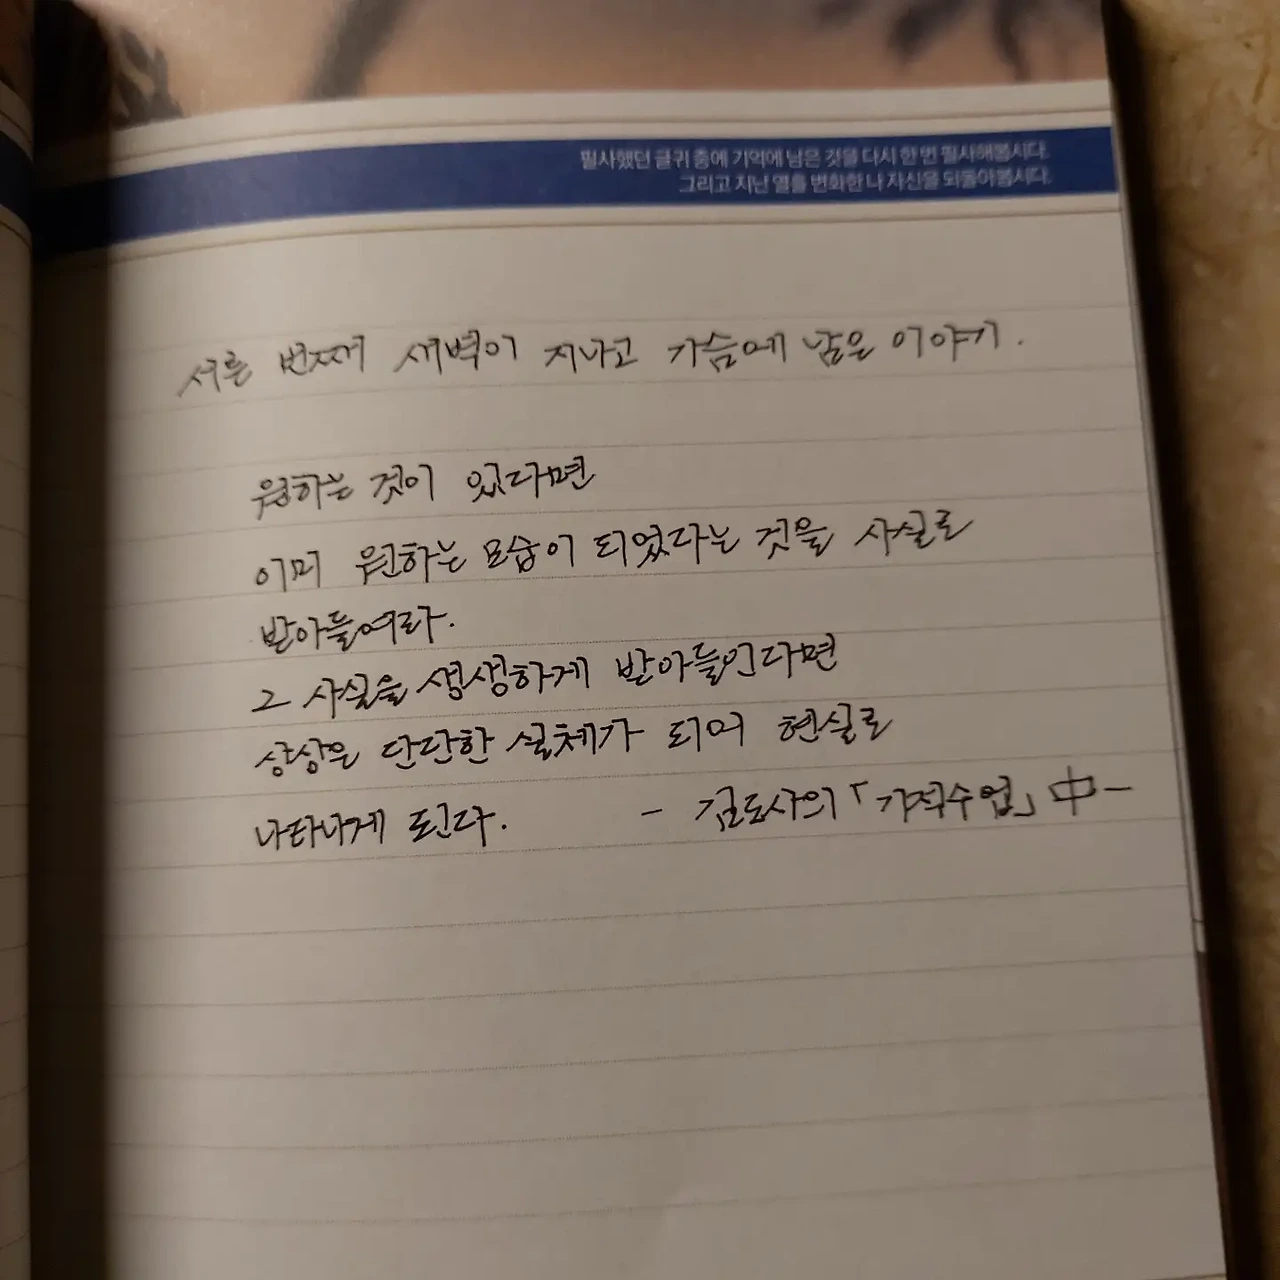 필사했던 글귀 중에 기억에 남은 것을 다시 한 번 필사해봅시다.
그리고 지난 열흘 변화한 나 자신을 되돌아봅시다.
서른 번째 새벽이 지나고 가슴에 남은 이야기.
원하는 것이 있다면
이미 원하는 모습이 되었다는 것을 사실로
받아들여라.
그 사실을 생생하게 받아들인다면
상상은 단단한 실체가 되어 현실로
나타나게 된다. - 김도사의 「기적수업」 中-